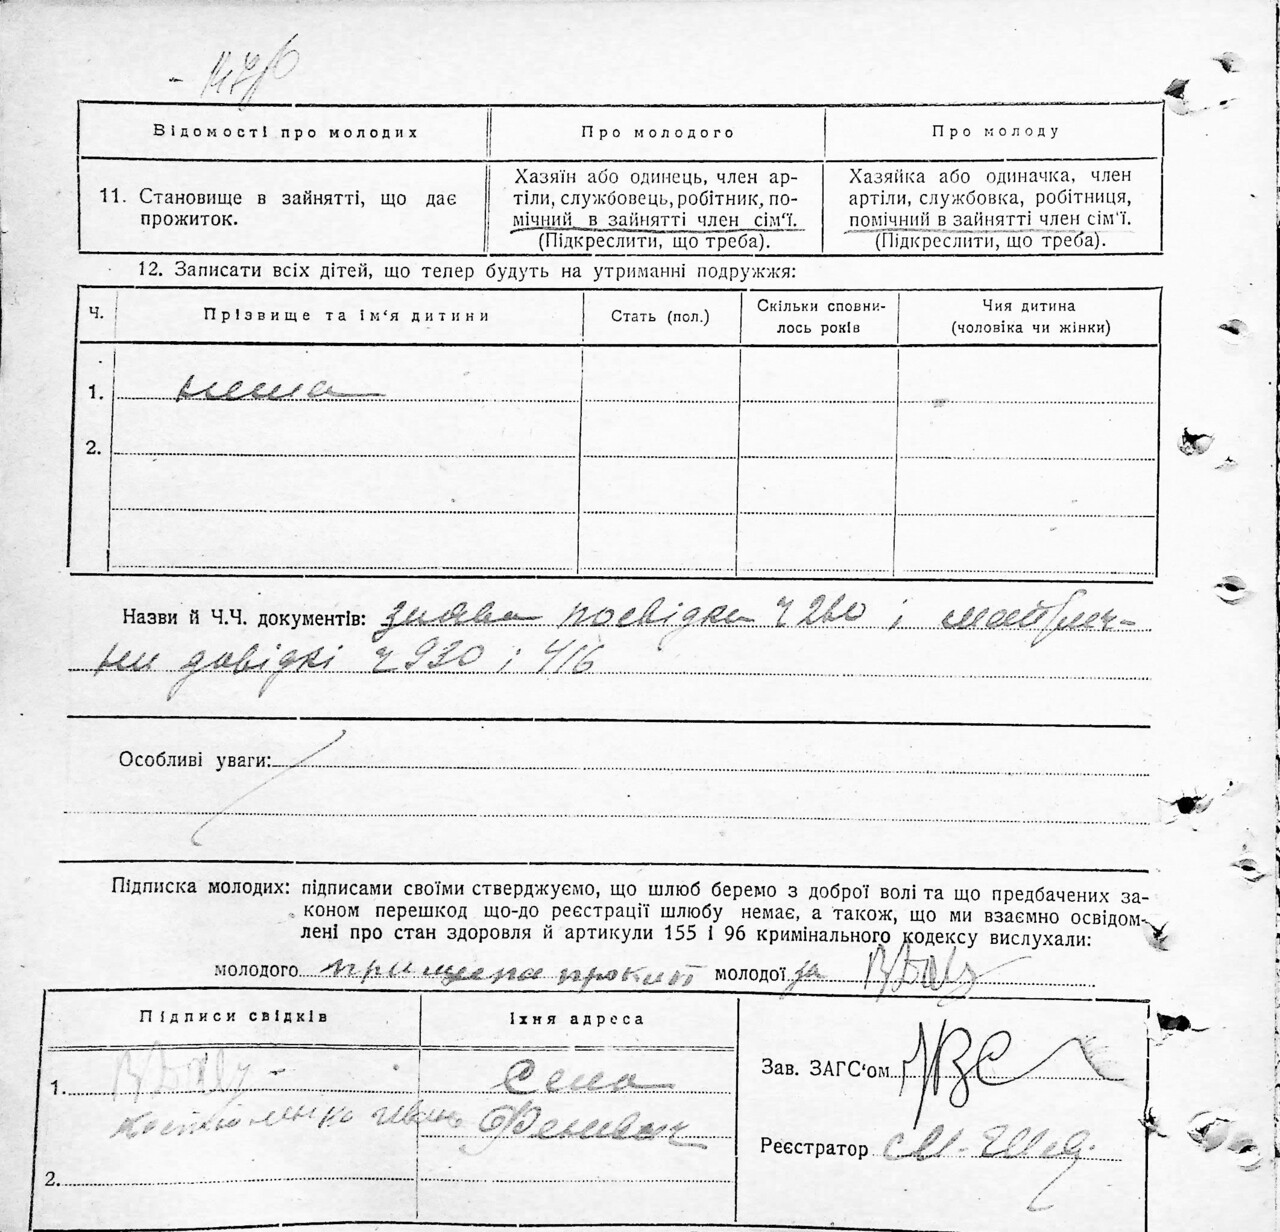 Відомості про молодих Про молодого Про молоду
11. Становище в зайнятті, що дає
прожиток.
Хазяїн або одинець, член ар-
тіли, службовець, робітник, по-
мічний в зайнятті член сім'ї.
(Підкреслити, що треба).
Хазяйка або одиначка, член
артіли, службовка, робітниця,
помічний в зайнятті член сім'ї.
(Підкреслити, що треба).
12. Записати всіх дітей, що тепер будуть на утриманні подружжя:
Ч. Прізвище та ім'я дитини Стать (пол.) Скільки сповни-
лось років
Чия дитина
(чоловіка чи жінки)
1. нема
2.
Назви й Ч.Ч. документів: заява посвідка ч 260 і
довідкі ч 930 і 416
Особливі уваги:
Підписка молодих: підписами своїми стверджуємо, що шлюб беремо з доброї волі та що предбачених за-
коном перешкод що-до реєстрації шлюбу немає, а також, що ми взаємно освідом-
лені про стан здоровля й артикули 155 і 96 кримінального кодексу вислухали:
молодого прищепа молодої за
Підписи свідків Їхня адреса
Зав. ЗАГС'ом
1. Села
Іван
Реєстратор
2.